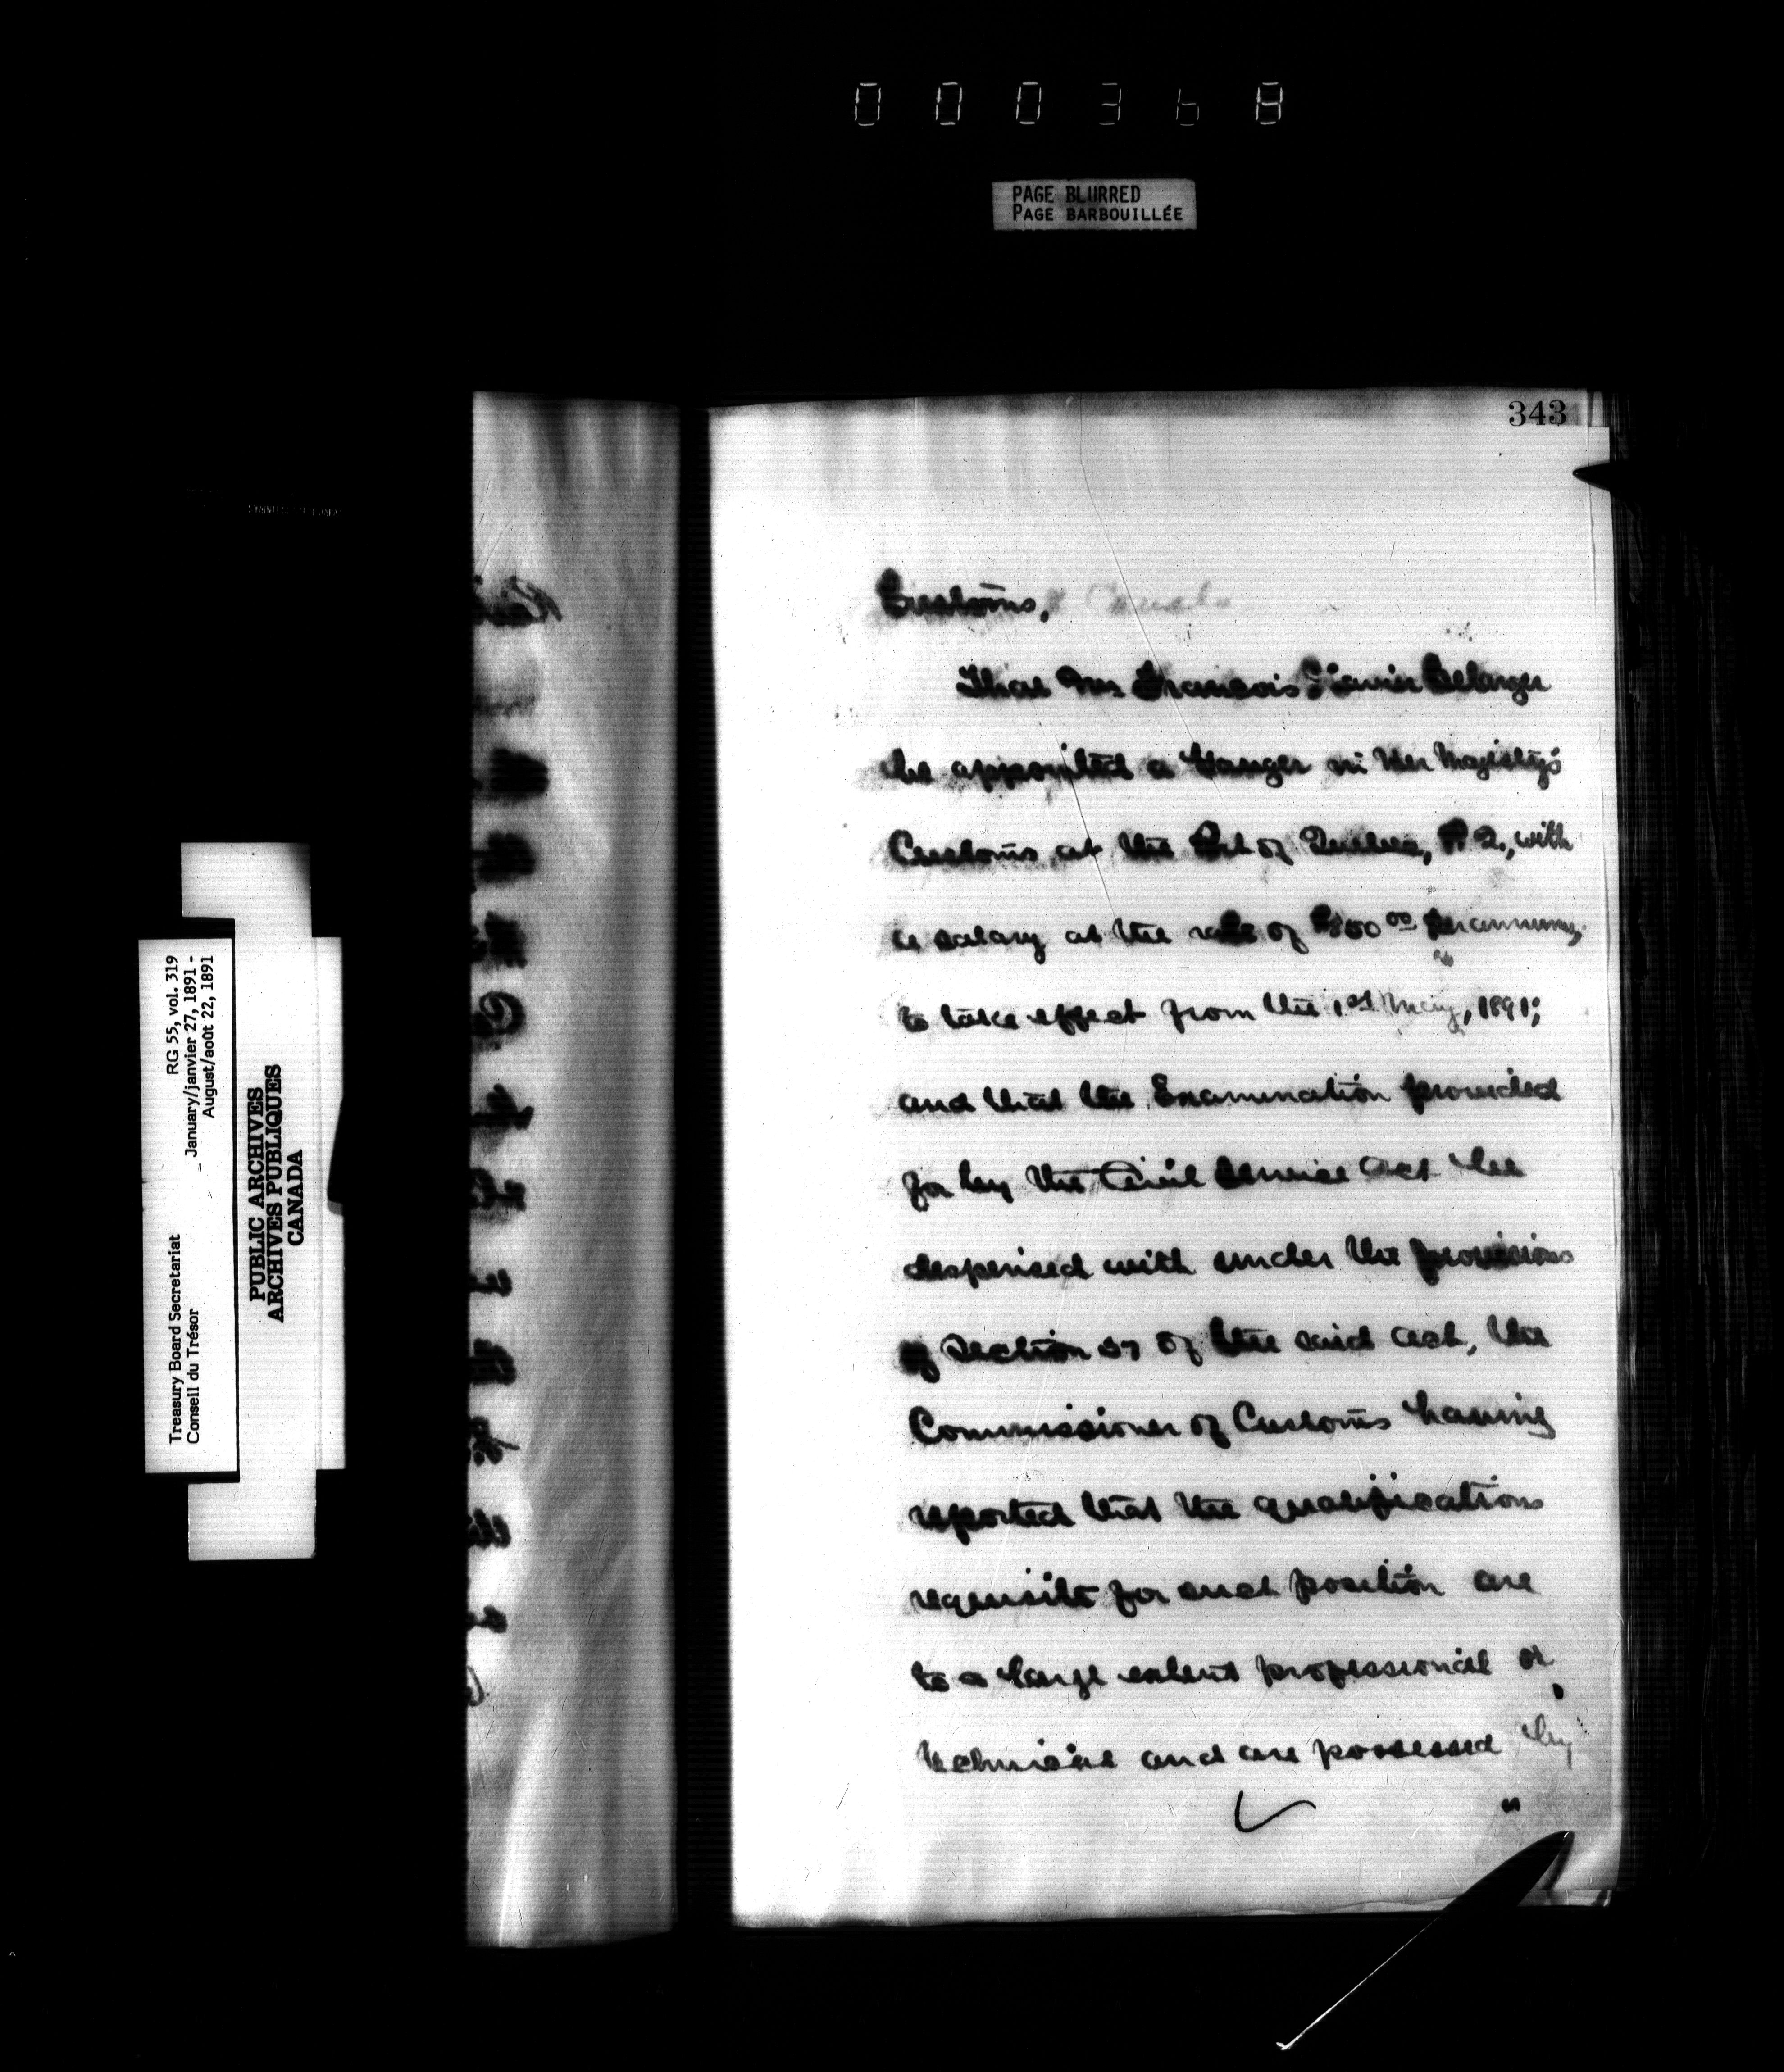 000368
PAGE BLURRED
PAGE BARBOUILLÉE
343
Customs,
That Mr François Xavier Belanger
be appointed a Ganger in Her Majesty's
Customs at the Port of Quebec, P. Q., with
a salary at the rate of $800 00 per annum,
to take effect from the 1st May, 1891;
and that the Examination provided
for by the Civil Service Act be
dispensed with under the provisions
of Section 37 of the said Act, the
Commissioner of Customs having
reported that the qualifications
requisite for such position are
to a large extent professional or
technical and are possessed by
Treasury Board Secretariat
Conseil du Trésor
RG 55, vol. 319
January/janvier 27, 1891 -
August/août 22, 1891
PUBLIC ARCHIVES
ARCHIVES PUBLIQUES
CANADA